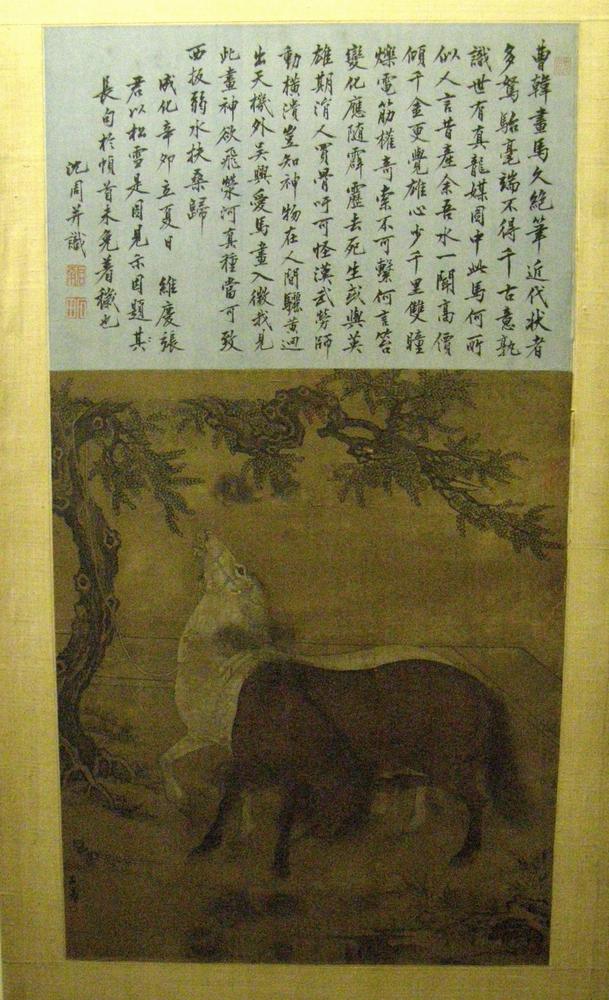 曹韓畫馬久絶筆近代狀者
多駑駘毫端不得千古意孰
識世有真龍媒圖中此馬何所
似人言昔產余吾水一聞高價
傾千金更覺雄心少千里雙瞳
爍電筋權奇索不可繫何言笞
變化應隨霹靂去死生或與英
雄期消人買骨吁可怪漢武勞師
動橫潰豈知神物在人間驪黃迥
出天機外吳興愛馬畫入微我見
此畫神欲飛滎河真種當可致
西扳弱水扶桑歸
成化辛卯立夏日 維慶張
君以松雪是圖見示因題其
長句於幀首未免着穢也
沈周并識